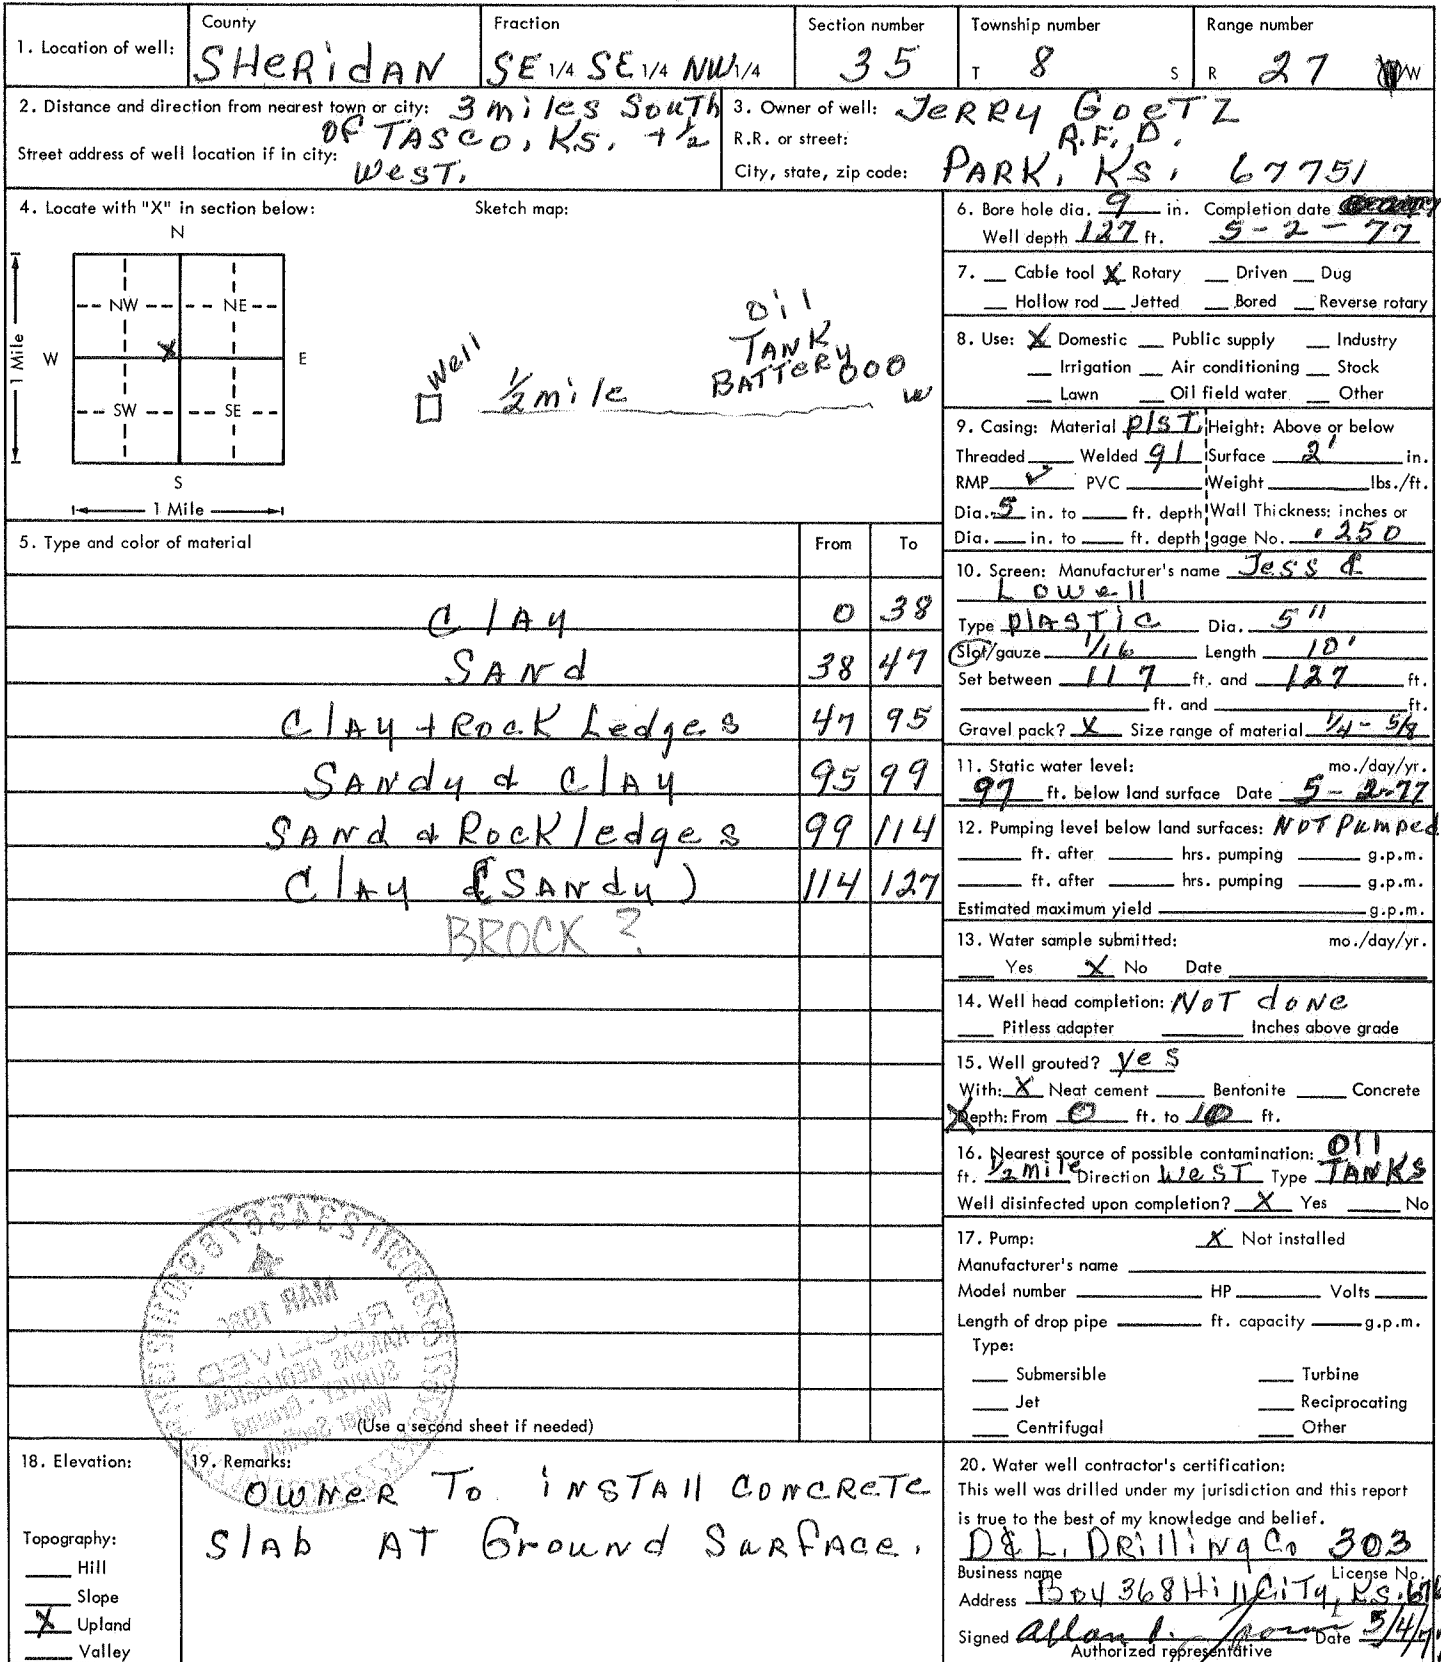 1. Location of well:
County
SHERIDAN
Fraction
SE 1/4 SE 1/4 NW 1/4
Section number
35
Township number
T 8 S
Range number
R 27 W
2. Distance and direction from nearest town or city: 3 miles South
of TASCO, KS. + 1/2
Street address of well location if in city:
West.
3. Owner of well: JERRY GOETZ
R.R. or street: R.F.D.
City, state, zip code: PARK, KS. 67751
4. Locate with "X" in section below:
Sketch map:
N
NW NE
W X E
SW SE
S
1 Mile
1 Mile
Well
1/2 mile
oil
TANK
BATTERY 000
W
5. Type and color of material From To
CLAY 0 38
SAND 38 47
Clay + Rock Ledges 47 95
SANDY & CLAY 95 99
SAND & Rock ledges 99 114
CLAY & (SANDY) 114 127
BROCK ?
(Use a second sheet if needed)
MAR 198
RECEIVED
KANSAS GEOLOGICAL
SURVEY - Ground
Water Section
6. Bore hole dia. 9 in. Completion date
Well depth 127 ft. 5-2-77
7. Cable tool X Rotary Driven Dug
Hollow rod Jetted Bored Reverse rotary
8. Use: X Domestic Public supply Industry
Irrigation Air conditioning Stock
Lawn Oil field water Other
9. Casing: Material plst. Height: Above or below
Threaded Welded 91 Surface 2' in.
RMP ✓ PVC Weight lbs./ft.
Dia. 5 in. to ft. depth Wall Thickness: inches or
Dia. in. to ft. depth gage No. .250
10. Screen: Manufacturer's name Jess &
Lowell
Type PLASTIC Dia. 5"
Slot/gauze 1/16 Length 10'
Set between 117 ft. and 127 ft.
ft. and ft.
Gravel pack? X Size range of material 1/4 - 5/8
11. Static water level: mo./day/yr.
97 ft. below land surface Date 5-2-77
12. Pumping level below land surfaces: NOT Pumped
ft. after hrs. pumping g.p.m.
ft. after hrs. pumping g.p.m.
Estimated maximum yield g.p.m.
13. Water sample submitted: mo./day/yr.
Yes X No Date
14. Well head completion: NOT done
Pitless adapter Inches above grade
15. Well grouted? yes
With: X Neat cement Bentonite Concrete
Depth: From 0 ft. to 10 ft.
16. Nearest source of possible contamination: OIL
ft. 1/2 mile Direction WEST Type TANKS
Well disinfected upon completion? X Yes No
17. Pump: X Not installed
Manufacturer's name
Model number HP Volts
Length of drop pipe ft. capacity g.p.m.
Type:
Submersible Turbine
Jet Reciprocating
Centrifugal Other
18. Elevation:
Topography:
Hill
Slope
X Upland
Valley
19. Remarks:
OWNER To iNSTAll CONCRETE
SlAb AT Ground SURFACE.
20. Water well contractor's certification:
This well was drilled under my jurisdiction and this report
is true to the best of my knowledge and belief.
D&L. DRilliNg Co 303
Business name License No.
Address Box 368 Hill CiTy, KS. 676
Signed Date 5/4/7
Authorized representative